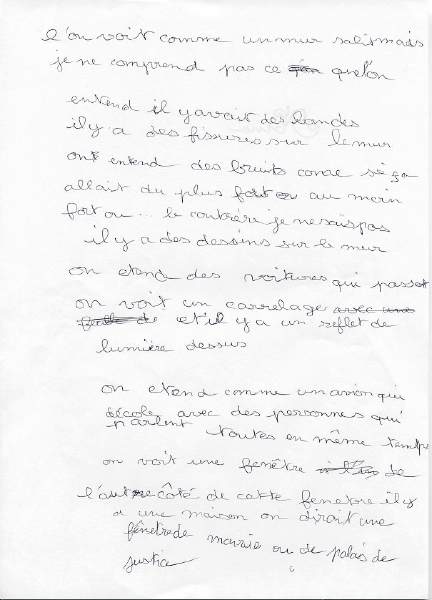 l'on voit comme un mur salit mais
je ne comprend pas ce que l'on
entend il y avait des bandes
il y a des fissures sur le mur
ont entend des bruits come si ça
allait du plus fort ou au moin
fort ou... le contrère je ne sais pas
il y a des dessins sur le mur
on etend des voitures qui passet
on voit un carrelage avec une
et il y a un reflet de
lumière dessus
on etend comme un avion qui
décole avec des personnes qui
parlent toutes en même temps
on voit une fenêtre de
l'autre côté de cette fenetre il y
a une maison on diroit une
fenêtre de mairie ou de palais de
justice